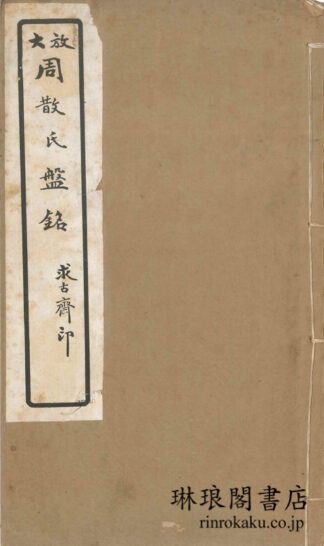 放大
周散氏盤銘
求古齋印
琳琅閣書店
rinrokaku.co.jp